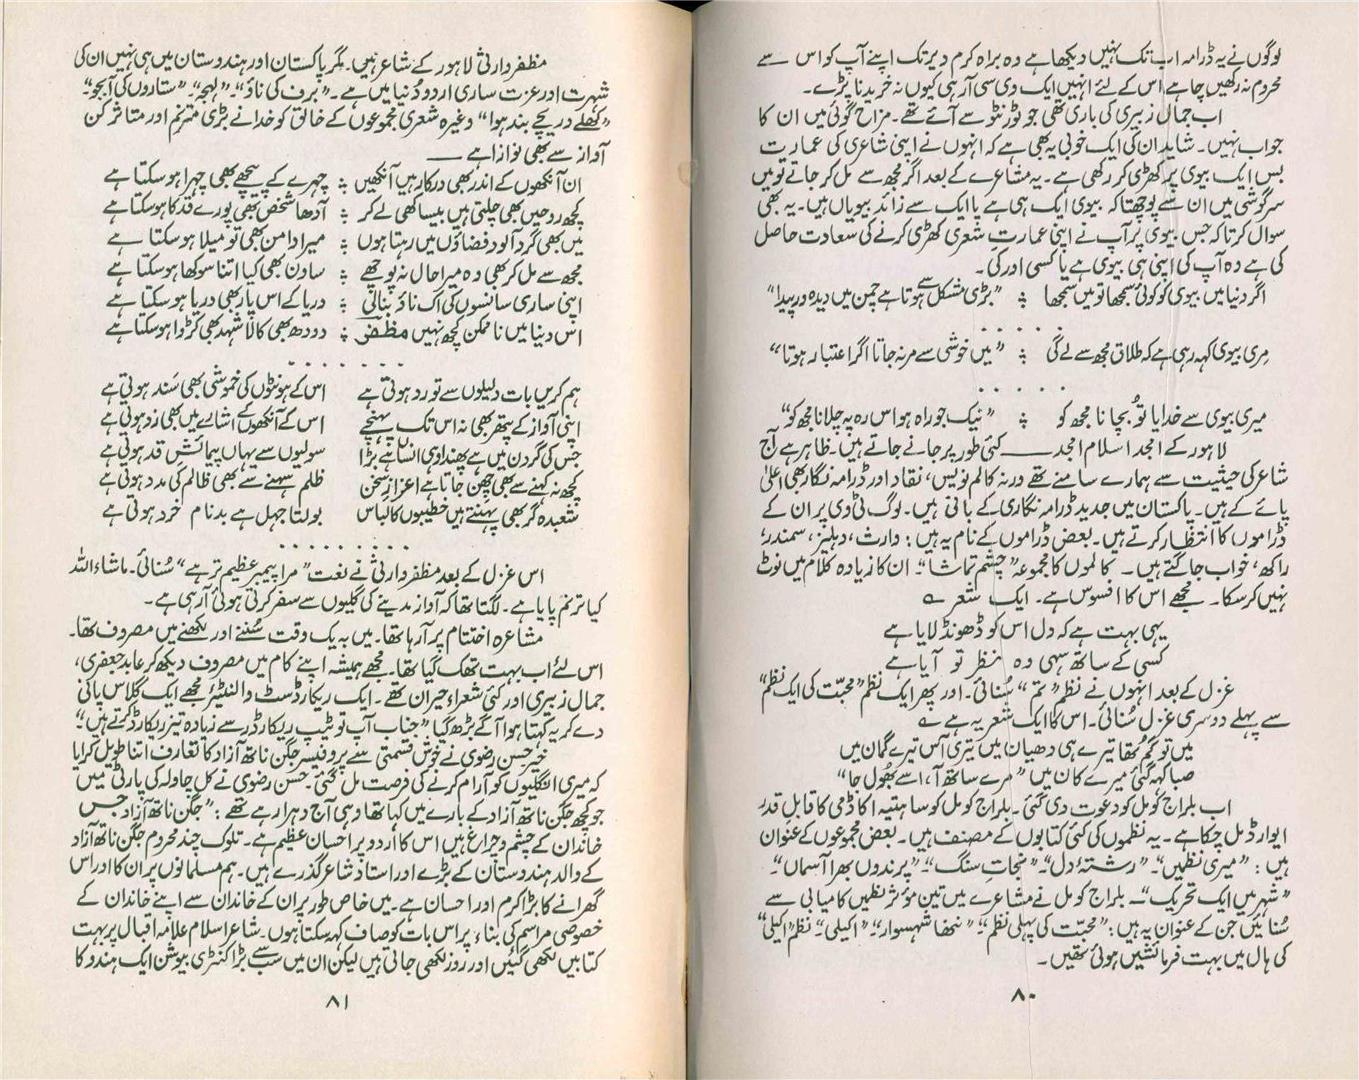 لوگوں نے یہ ڈرامہ اب تک نہیں دیکھا ہے وہ براہ کرم دیر تک اپنے آپ کو اس سے
محروم نہ رکھیں چاہے اس کے لئے انہیں ایک وی سی آر ہی کیوں نہ خریدنا پڑے۔
اب جمال زبیری کی باری تھی جو ٹورنٹو سے آئے تھے۔ مزاح گوئی میں ان کا
جواب نہیں۔ شاید ان کی ایک خوبی یہ بھی ہے کہ انہوں نے اپنی شاعری کی عمارت
بس ایک بیوی پر کھڑی کر رکھی ہے۔ یہ مشاعرے کے بعد اگر مجھ سے مل کر جاتے تو میں
سرگوشی میں ان سے پوچھتا کہ بیوی ایک ہی ہے یا ایک سے زائد بیویاں ہیں۔ یہ بھی
سوال کرتا کہ جس بیوی پر آپ نے اپنی عمارت شعری کھڑی کرنے کی سعادت حاصل
کی ہے وہ آپ کی اپنی ہی بیوی ہے یا کسی اور کی۔
اگر دنیا میں بیوی کو کوئی سمجھا تو میں سمجھا ؛ "بڑی مشکل سے ہوتا ہے چمن میں دیدہ ور پیدا"
۔۔۔۔۔
مری بیوی کہہ رہی ہے کہ طلاق مجھ سے لے گی ؛ "میں خوشی سے مر نہ جاتا اگر اعتبار ہوتا"
۔۔۔۔۔
میری بیوی سے خدایا تُو بچانا مجھ کو ؛ "نیک جو راہ ہو اس رہ پہ چلانا مجھ کو"
لاہور کے امجد اسلام امجد ـــــ کئی طور پر جانے جاتے ہیں۔ ظاہر ہے آج
شاعر کی حیثیت سے ہمارے سامنے تھے ورنہ کالم نویس، نقاد اور ڈرامہ نگار بھی اعلیٰ
پائے کے ہیں۔ پاکستان میں جدید ڈرامہ نگاری کے بانی ہیں۔ لوگ ٹی وی پر ان کے
ڈراموں کا انتظار کرتے ہیں۔ بعض ڈراموں کے نام یہ ہیں: وارث، دہلیز، سمندر،
راکھ، خواب جاگتے ہیں۔ کالموں کا مجموعہ "چشم تماشا"۔ ان کا زیادہ کلام میں نوٹ
نہیں کر سکا۔ مجھے اس کا افسوس ہے۔ ایک شعر ؎
یہی بہت ہے کہ دل اس کو ڈھونڈ لایا ہے
کسی کے ساتھ سہی وہ نظر تو آیا ہے
غزل کے بعد انہوں نے نظم "تم" سُنائی۔ اور پھر ایک نظم "محبّت کی ایک نظم"
سے پہلے دوسری غزل سُنائی۔ اس کا ایک شعر یہ ہے ؎
میں تو گم تھا تیرے ہی دھیان میں تیری آس تیرے گمان میں
صبا کہہ گئی میرے کان میں "مرے ساتھ آ، اسے بھُول جا"
اب بلراج کومل کو دعوت دی گئی۔ بلراج کومل کو ساہتیہ اکاڈمی کا قابل قدر
ایوارڈ مل چکا ہے۔ یہ نظموں کی کئی کتابوں کے مصنف ہیں۔ بعض مجموعوں کے عنوان
ہیں: "میری نظمیں"۔ "رشتۂ دل"۔ "نجاتِ سنگ"۔ "پرندوں بھرا آسماں"۔
"شہر میں ایک تحریک"۔ بلراج کومل نے مشاعرے میں تین مؤثر نظمیں کامیابی سے
سُنائیں جن کے عنوان یہ ہیں: "محبّت کی پہلی نظم"، "ننھا شہسوار"، "اکیلی"۔ نظم "اکیلی"
کی ہال میں بہت فرمائشیں ہوئی تھیں۔
۸۰
مظفر وارثی لاہور کے شاعر ہیں۔ مگر پاکستان اور ہندوستان میں ہی نہیں ان کی
شہرت اور عزت ساری اردو دُنیا میں ہے۔ "برف کی ناؤ"۔ "لہجہ"۔ "ستاروں کی آبجو"۔
"کھلے دریچے بند ہوا" وغیرہ شعری مجموعوں کے خالق کو خدا نے بڑی مترنم اور متاثر کن
آواز سے بھی نوازا ہے ـــــ
ان آنکھوں کے اندر بھی درکار ہیں آنکھیں ؛ چہرے کے پیچھے بھی چہرا ہو سکتا ہے
کچھ روحیں بھی چلتی ہیں بیساکھی لے کر ؛ آدھا شخص بھی پورے قد کا ہو سکتا ہے
میں بھی گرد آلود فضاؤں میں رہتا ہوں ؛ میرا دامن بھی تو میلا ہو سکتا ہے
مجھ سے مل کر بھی وہ میرا حال نہ پوچھے ؛ ساون بھی کیا اتنا سوکھا ہو سکتا ہے
اپنی ساری سانسوں کی اک ناؤ بنائی ؛ دریا کے اس پار بھی دریا ہو سکتا ہے
اس دنیا میں ناممکن کچھ نہیں مظفر ؛ دودھ بھی کالا شہد بھی کڑوا ہو سکتا ہے
۔۔۔۔۔۔۔
ہم کریں بات دلیلوں سے تو رد ہوتی ہے اس کے ہونٹوں کی خموشی بھی سَند ہوتی ہے
اپنی آواز کے پتھر بھی نہ اس تک پہنچے اس کے آنکھوں کے اشارے میں بھی زد ہوتی ہے
جس کی گردن میں ہے پھندا وہی انساں ہے بڑا سولیوں سے یہاں پیمائشِ قد ہوتی ہے
کچھ نہ کہنے سے بھی چھن جاتا ہے اعزازِ سخن ظلم سہنے سے بھی ظالم کی مدد ہوتی ہے
شعبدہ گر بھی پہنتے ہیں خطیبوں کا لباس بولتا جہل ہے بدنام خرد ہوتی ہے
۔۔۔۔۔۔۔۔
اس غزل کے بعد مظفر وارثی نے نعت "مرا پیمبر عظیم تر ہے" سُنائی۔ ماشاءاللہ
کیا ترنم پایا ہے۔ لگتا تھا کہ آواز مدینے کی گلیوں سے سفر کرتی ہوئی آ رہی ہے۔
مشاعرہ اختتام پر آ رہا تھا۔ میں بہ یک وقت سُننے اور لکھنے میں مصروف تھا۔
اس لئے اب بہت تھک گیا تھا۔ مجھے ہمیشہ اپنے کام میں مصروف دیکھ کر عابد جعفری،
جمال زبیری اور کئی شعراء حیران تھے۔ ایک ریکارڈسٹ والنٹیئر مجھے ایک گلاس پانی
دے کر یہ کہتا ہوا آگے بڑھ گیا "جناب آپ تو ٹیپ ریکارڈر سے زیادہ تیز ریکارڈ کرتے ہیں"۔
خیر حسن رضوی نے خوش قسمتی سے پروفیسر جگن ناتھ آزاد کا تعارف اتنا طویل کرایا
کہ میری انگلیوں کو آرام کرنے کی فرصت مل گئی۔ حسن رضوی نے کل چاولہ کی پارٹی میں
جو کچھ جگن ناتھ آزاد کے بارے میں کہا تھا وہی آج دہرا رہے تھے: "جگن ناتھ آزاد جس
خاندان کے چشم و چراغ ہیں اس کا اردو پر احسان عظیم ہے۔ تلوک چند محروم جگن ناتھ آزاد
کے والد ہندوستان کے بڑے اور استاد شاعر گذرے ہیں۔ ہم مسلمانوں پر ان کا اور اس
گھرانے کا بڑا کرم اور احسان ہے۔ میں خاص طور پر ان کے خاندان سے اپنے خاندان کے
خصوصی مراسم کی بناء پر اس بات کو صاف کہہ سکتا ہوں۔ شاعر اسلام علامہ اقبال پر بہت
کتابیں لکھی گئیں اور روز لکھی جاتی ہیں لیکن ان میں سب سے بڑا کنٹری بیوشن ایک ہندو کا
۸۱